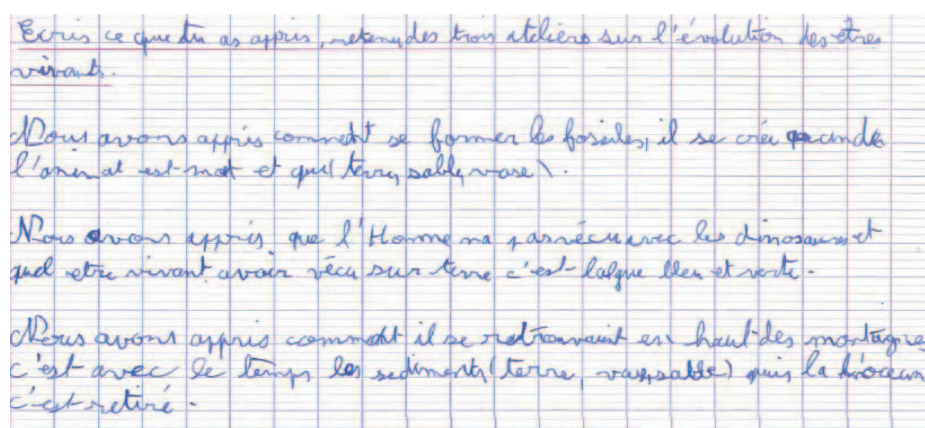 Ecris ce que tu as appris, retenu, des trois ateliers sur l'évolution des êtres
vivants.
Nous avons appris comment se former les fossiles, il se crée quande
l'animal est mort et que (terre, sable, vase).
Nous avons appris que l'Homme na pas vécu avec les dinosaures et
quel etre vivant avoir vécu sur terre c'est lalgue bleu et verte.
Nous avons appris comment il se retrouvait en haut des montagnes
c'est avec le temps les sediments (terre, vase, sable) puis la
c'est retiré.